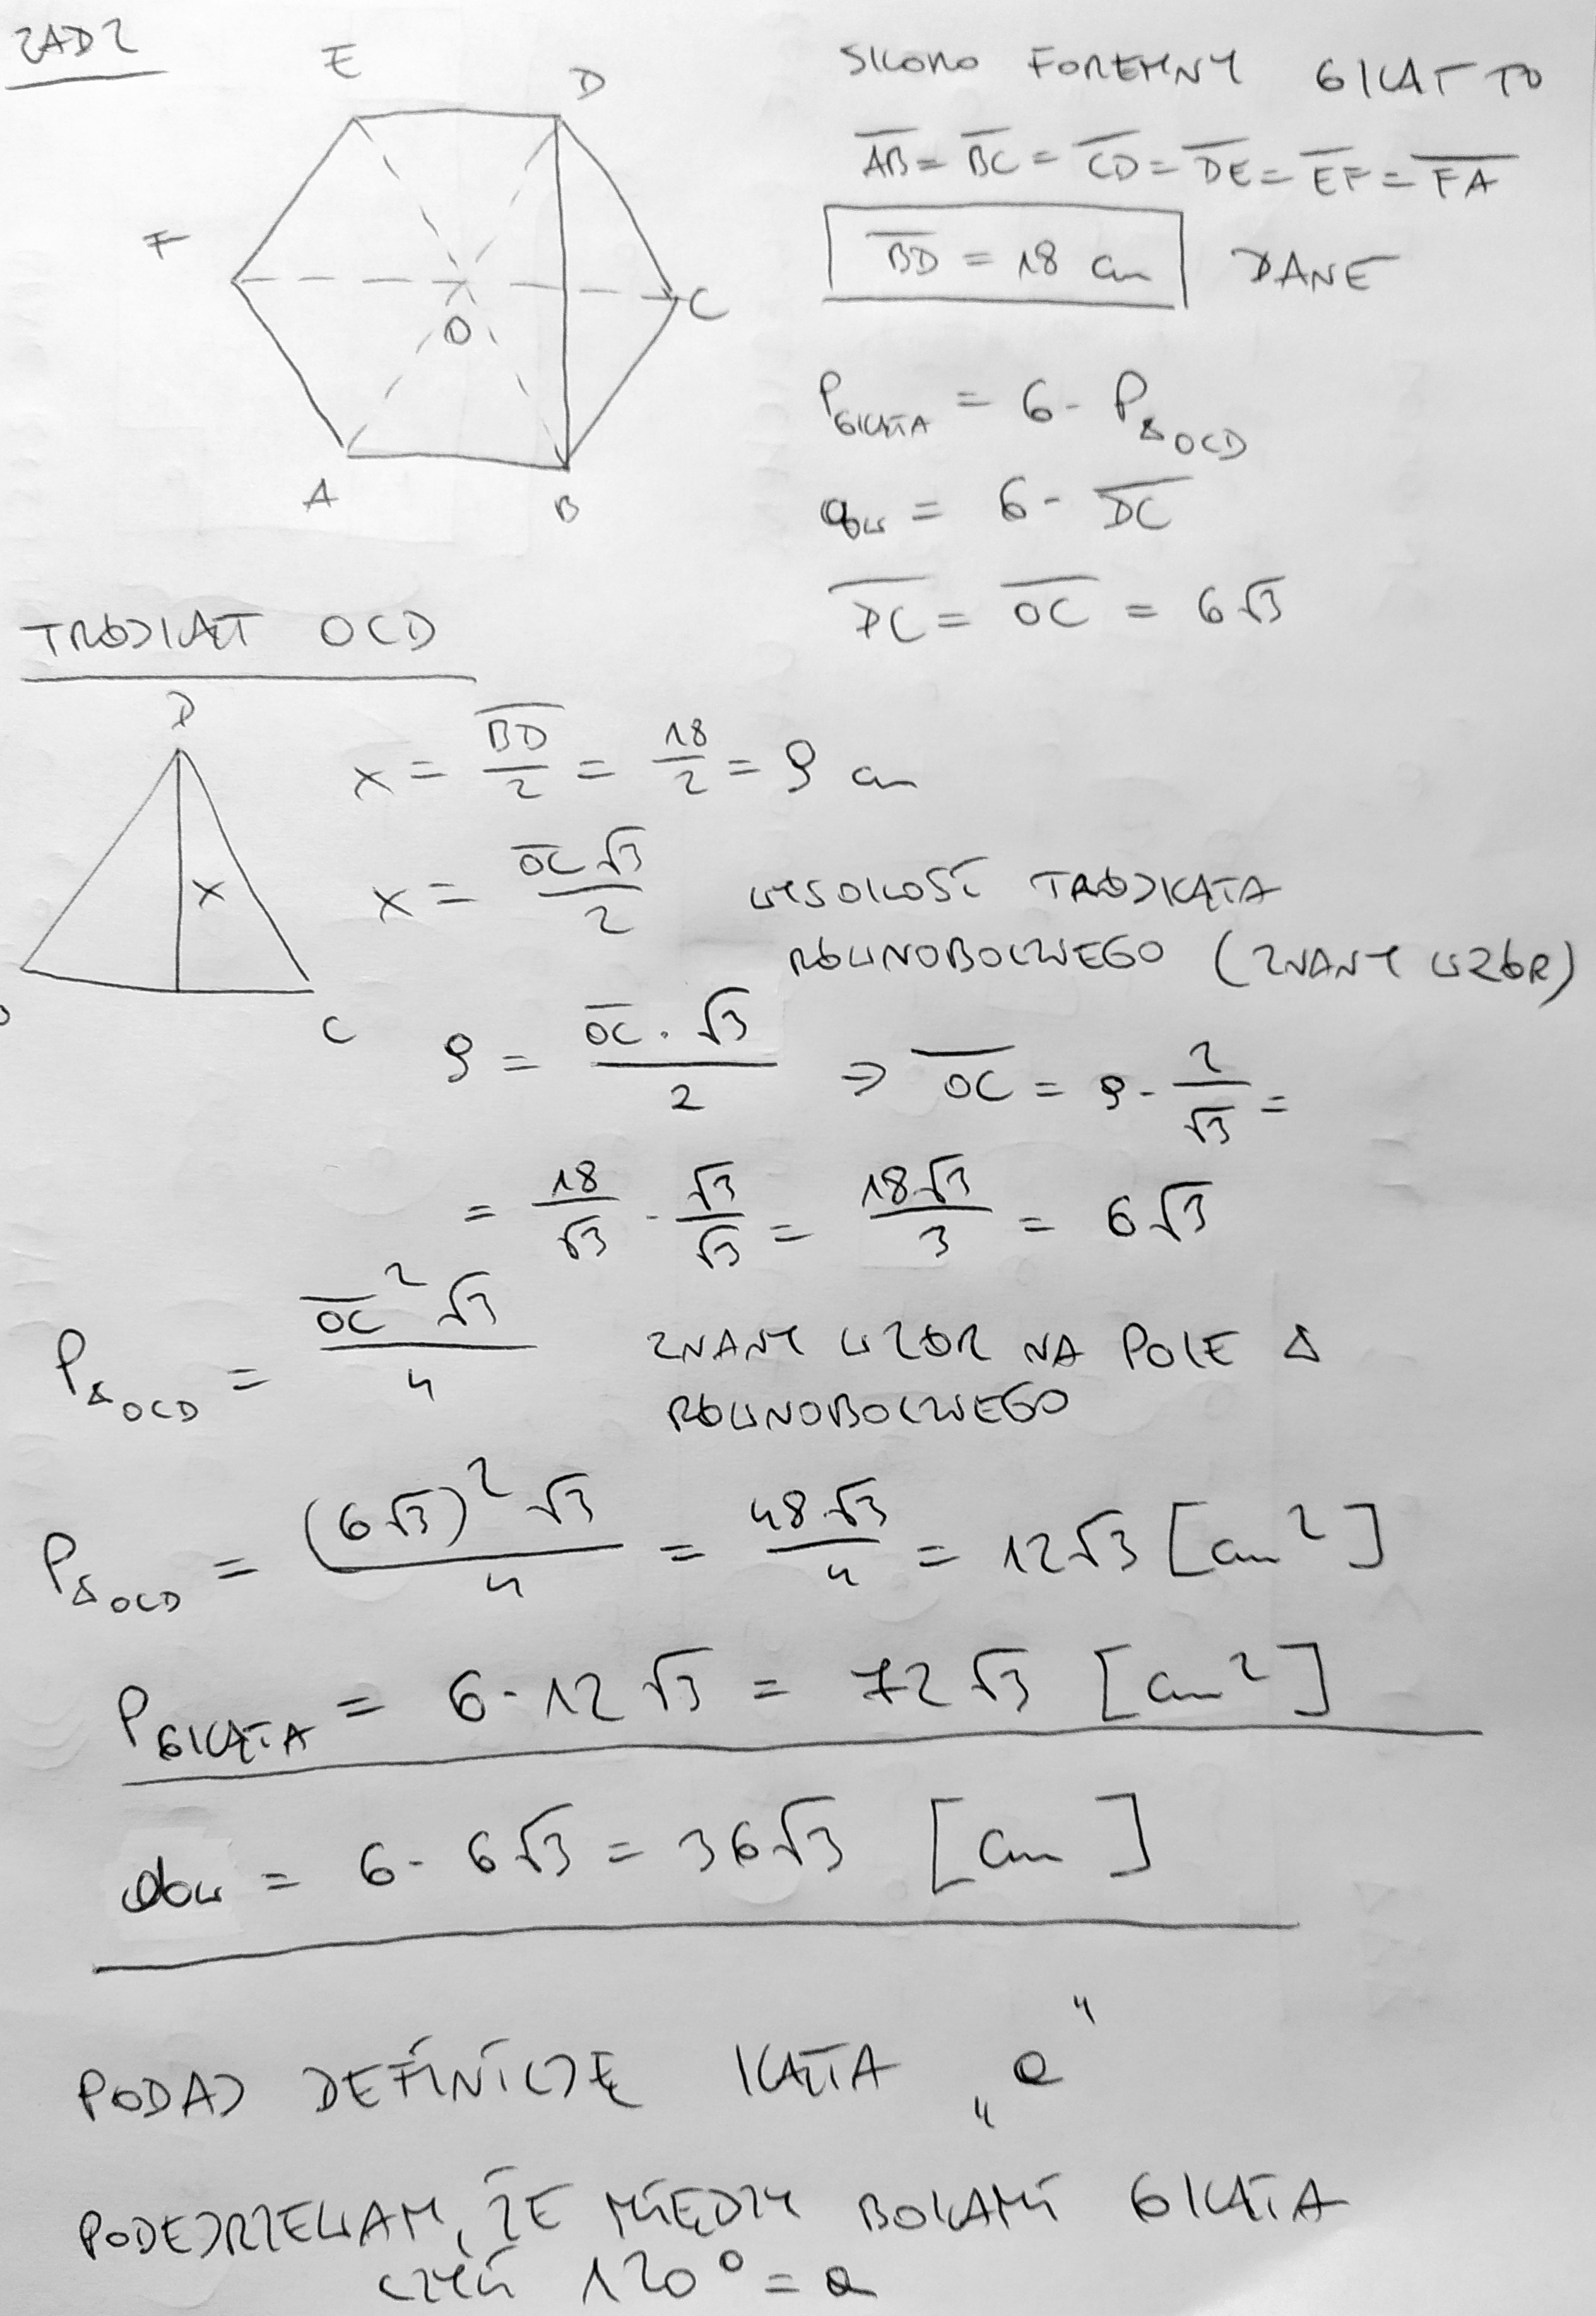 ZAD 2
E
D
F
O
C
A
B
SKORO FOREMNY 6KĄT TO
AB = BC = CD = DE = EF = FA
BD = 18 cm DANE
P6KĄTA = 6 · PΔOCD
obw = 6 · DC
DC = OC = 6√3
TRÓJKĄT OCD
D
x
O
C
x = BD/2 = 18/2 = 9 cm
x = OC√3/2 WYSOKOŚĆ TRÓJKĄTA
RÓWNOBOCZNEGO (ZNANY WZÓR)
9 = OC · √3/2 ⇒ OC = 9 · 2/√3 =
= 18/√3 · √3/√3 = 18√3/3 = 6√3
PΔOCD = OC²√3/4 ZNANY WZÓR NA POLE Δ
RÓWNOBOCZNEGO
PΔOCD = (6√3)²√3/4 = 48√3/4 = 12√3 [cm²]
P6KĄTA = 6 · 12√3 = 72√3 [cm²]
obw = 6 · 6√3 = 36√3 [cm]
PODAJ DEFINICJĘ KĄTA „a"
PODEJRZEWAM, ŻE MIĘDZY BOKAMI 6KĄTA
CZYLI 120° = a